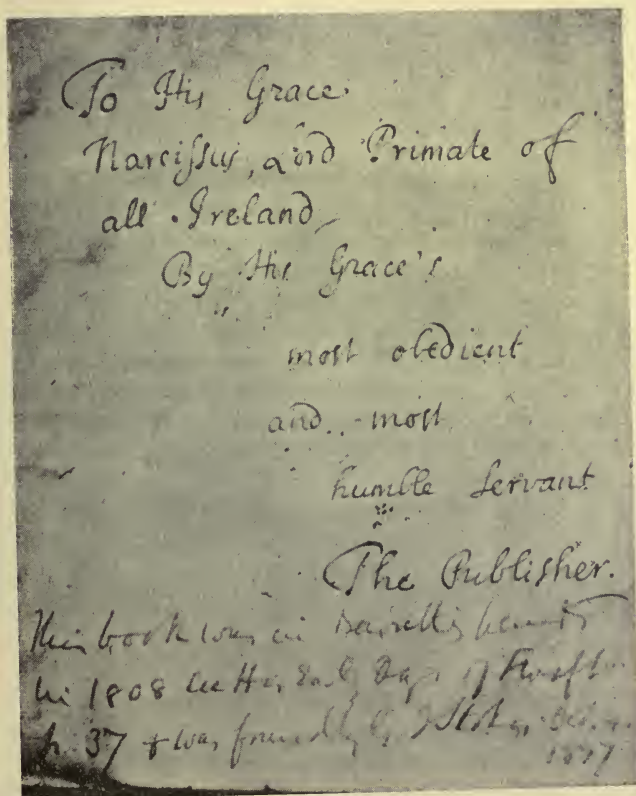 To His Grace
Narcissus, Lord Primate of
all Ireland,
By His Grace's
most obedient
and most
humble Servant
The Publisher.
This book was in
in 1808 See His Early Days of
p. 37 & was found by
1877